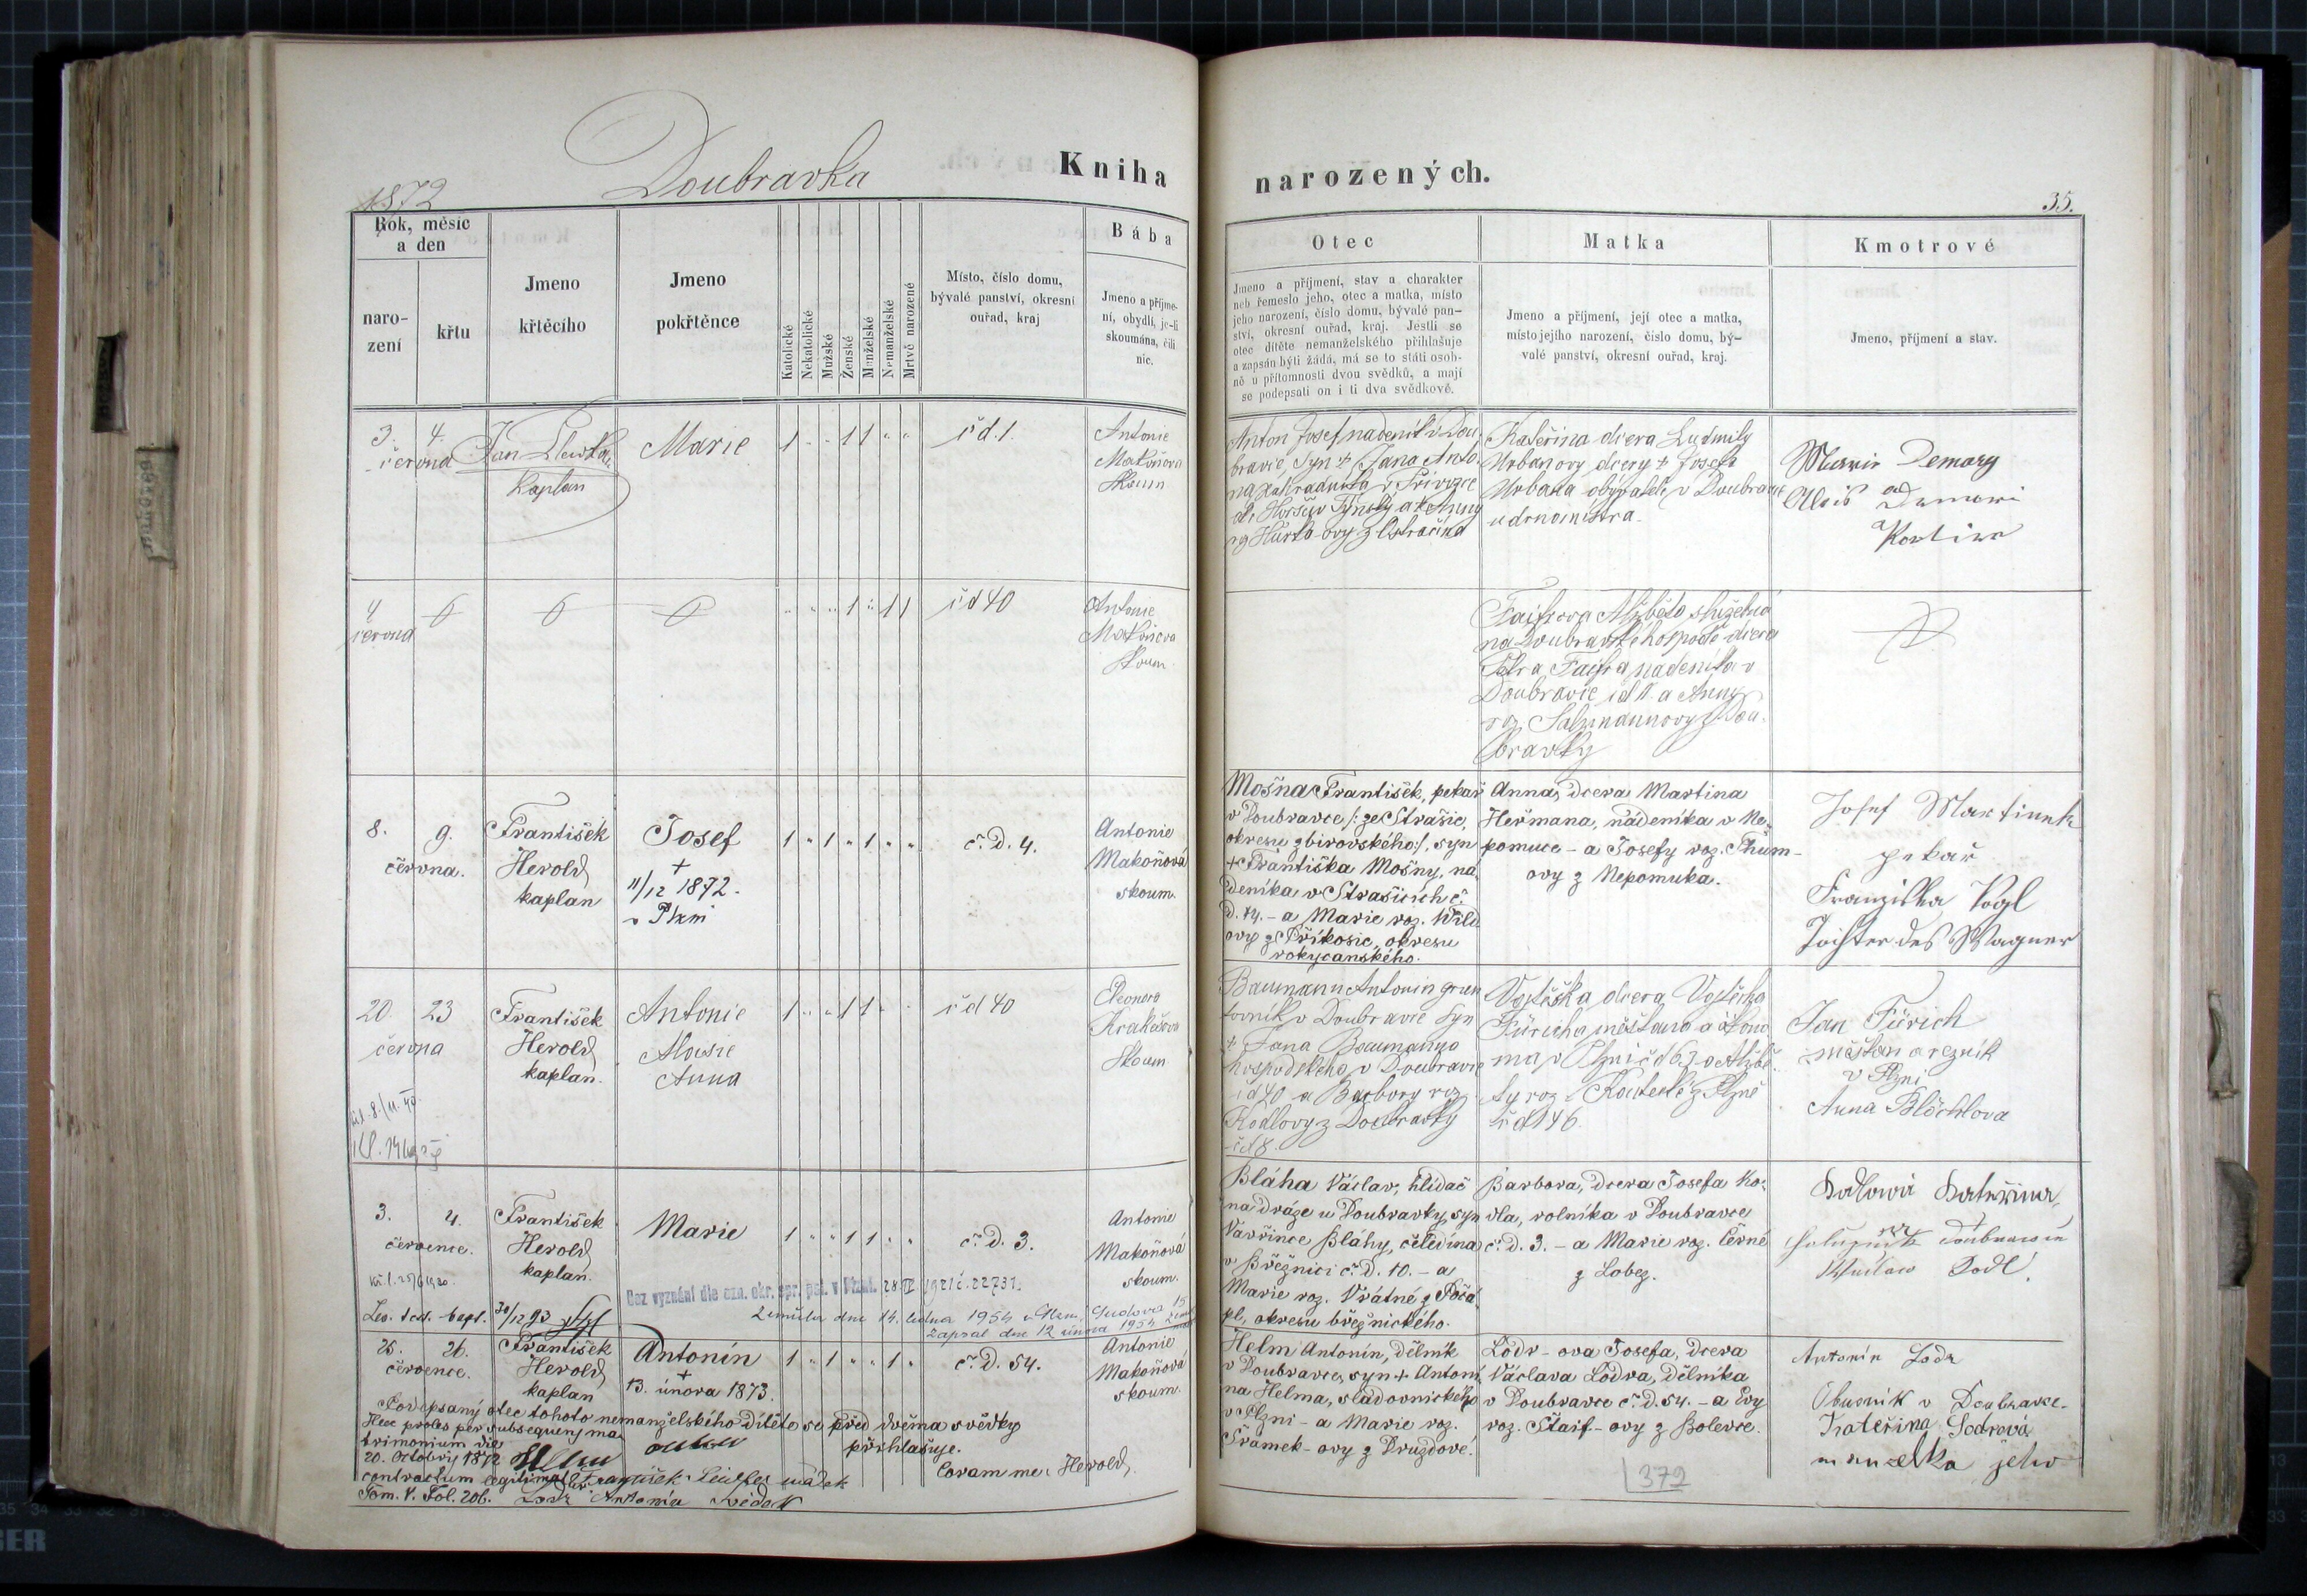 1872
Doubravka
Kniha
narozených.
35.
Rok, měsíc
a den
naro-
zení
křtu
Jmeno
křtěcího
Jmeno
pokřtěnce
Katolické
Nekatolické
Mužské
Ženské
Manželské
Nemanželské
Mrtvě narozené
Místo, číslo domu,
bývalé panství, okresní
ouřad, kraj
Bába
Jmeno a příjme-
ní, obydlí, je-li
skoumána, čili
nic.
Otec
Jmeno a příjmení, stav a charakter
neb řemeslo jeho, otec a matka, místo
jeho narození, číslo domu, bývalé pan-
ství, okresní ouřad, kraj. Jestli se
otec dítěte nemanželského přihlašuje
a zapsán býti žádá, má se to státi osob-
ně u přítomnosti dvou svědků, a mají
se podepsati on i ti dva svědkové.
Matka
Jmeno a příjmení, její otec a matka,
místo jejího narození, číslo domu, bý-
valé panství, okresní ouřad, kraj.
Kmotrové
Jmeno, příjmení a stav.
3. 4.
června
Jan
kaplan
Marie
1 " " 1 1 " "
čd. 1.
Antonie
Makoňova
skoum
Anton Josef nadeník v Dou
bravce, syn + Jana Anto
na zahradníka
Týnský a Anny
Kateřina dcera Ludmily
Urbanovy dcery + Josefa
Urbana obyvatele v Doubravce
Marie Demary
Alois
4
června
" " " 1 " 1 1
čd 40
Antonie
Makoňova
skoum
Alžběta služebná
na Doubravské hospodě dcera
Petra nadeníka v
Doubravce a Anny
roz. z Dou-
bravky
8. 9.
června.
František
Herold
kaplan
Josef
+
11/12 1872.
v Plzni
1 " 1 " 1 " "
č. D. 4.
Antonie
Makoňová
skoum.
Mošna František, pekař
v Doubravce /: ze Strašic,
okresu zbirovského :/, syn
+ Františka Mošny, ná-
deníka v Strašicích č.
D. 14. - a Marie roz. Wild
ovy z Příkosic, okresu
rokycanského.
Anna, dcera Martina
Heřmana, nádeníka v Ne-
pomuce - a Josefy roz. Thům-
ovy z Nepomuka.
Josef Martinek
pekař
Franziska Vogl
Tochter des Wagner
20. 23
června
František
Herold
kaplan.
Antonie
Alousie
Anna
1 " " 1 1 " "
čd 40
Eleonora
Skoum
Baumann Antonin grun
tovník v Doubravce syn
+ Jana Baumanna
hospodského v Doubravce
čd 40 a Barbory roz
Kodlovy z Doubravky
čd 8.
Vojtěška dcera Vojtěcha
Füricha měšťana a ekono
ma v Plzni čd 63 a Alžbě
ty roz. z Plzně
čd 146
Jan Fürich
měšťan a rezník
v Plzni
Anna Blöchlova
3. 4.
července.
František
Herold
kaplan.
Marie
1 " " 1 1 " "
č. D. 3.
Antonie
Makoňová
skoum.
Bez vyznání dle ozn. okr. spr. pol. v Plzni. 28 IV 1921 č. 22731.
Zemřela dne 14. ledna 1954 v Plzni,
Zapsal dne 12 února 1954
30/12 93
Bláha Václav, hlídač
na dráze u Doubravky, syn
Vavřince Bláhy, čeledína
v Březnici č. D. 10. - a
Marie roz. Vrátné z Počá-
pl, okresu březnického.
Barbora, dcera Josefa Ko-
dla, rolníka v Doubravce
č. D. 3. - a Marie roz. Černé
z Lobez.
Kodlowá Kateřina,
Kodl.
25. 26.
července.
František
Herold
kaplan
Antonín
+
13. února 1873.
1 " 1 " " 1 "
č. D. 54.
Antonie
Makoňová
skoum.
Podepsaný otec tohoto nemanželského dítěte se před dvěma svědky
přihlašuje.
Haec proles per subsequens ma-
trimonium die
20. Octobris 1872
contractum legitimata est
Tom. V. Fol. 206.
Helm
František
Lodr Antonín svědek
Coram me: Herold,
Helm Antonín, dělník
v Doubravce, syn + Antoní-
na Helma, sladovnického
v Plzni - a Marie roz.
Šrámek-ovy z Druzdové.
Lodr-ova Josefa, dcera
Václava Lodra, dělníka
v Doubravce č. D. 54. - a Evy
roz. Štaif-ovy z Bolevce.
Antonín Lodr
v Doubravce.
Kateřina Lodrová
manzelka jeho
372